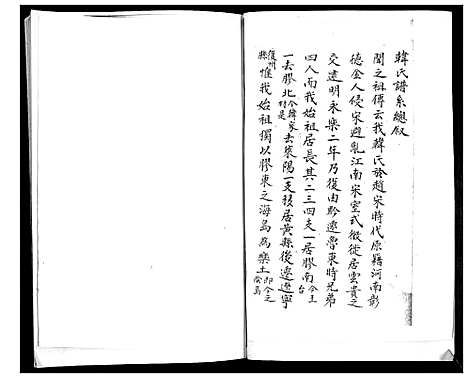 韓氏譜系總叙
聞之祖傳云我韓氏於趙宋時代原籍河南彰
德金人侵宋避亂江南宋室式微徙居雲貴之
交達明永樂二年乃復由黔遷魯東時兄弟
四人而我始祖居長其二三四支一居膠南今王台
一去膠北今韓家村是去萊陽一支移居黃縣後遷遼寧
復州縣惟我始祖獨以膠東之海島為樂土即今之徐島